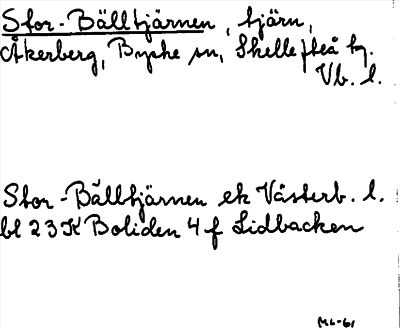 Stor-Bälltjärnen, tjärn,
Åkerberg, Byske sn, Skellefteå tg.
Vb. l.
Stor-Bälltjärnen ek Västerb. l.
bl 23K Boliden 4f Lidbacken
ML-61